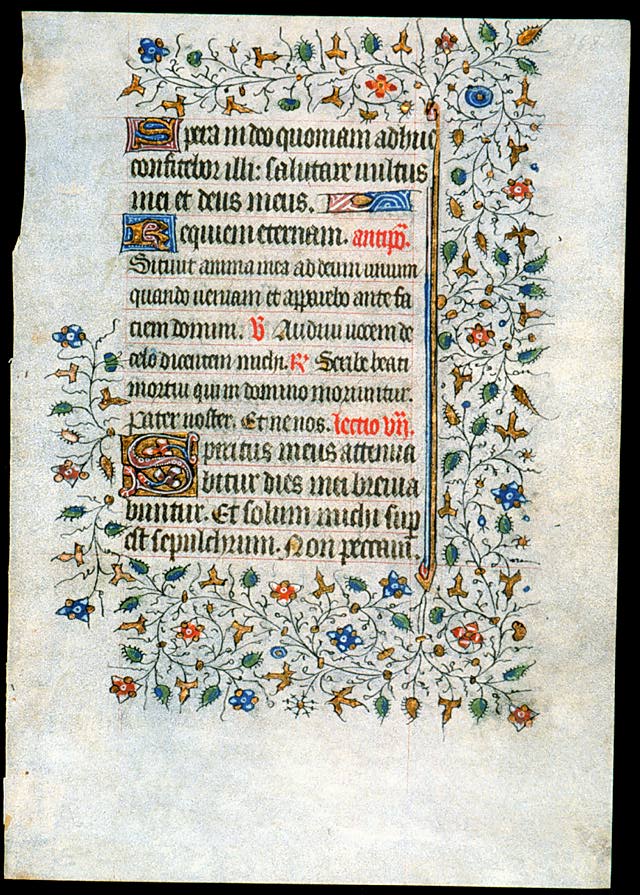 Spera in deo quoniam adhuc
confitebor illi: salutare vultus
mei et deus meus.
Requiem eternam. antiph̄.
Sitivit anima mea ad deum vivum
quando veniam et apparebo ante fa
ciem domini. V̄ Audivi vocem de
celo dicentem michi. R̄ Scribe beati
mortui qui in domino moriuntur.
Pater noster. Et ne nos. lectio vii.
Spiritus meus attenua
bitur dies mei brevia
buntur. Et solum michi sup
est sepulchrum. Non peccavi.